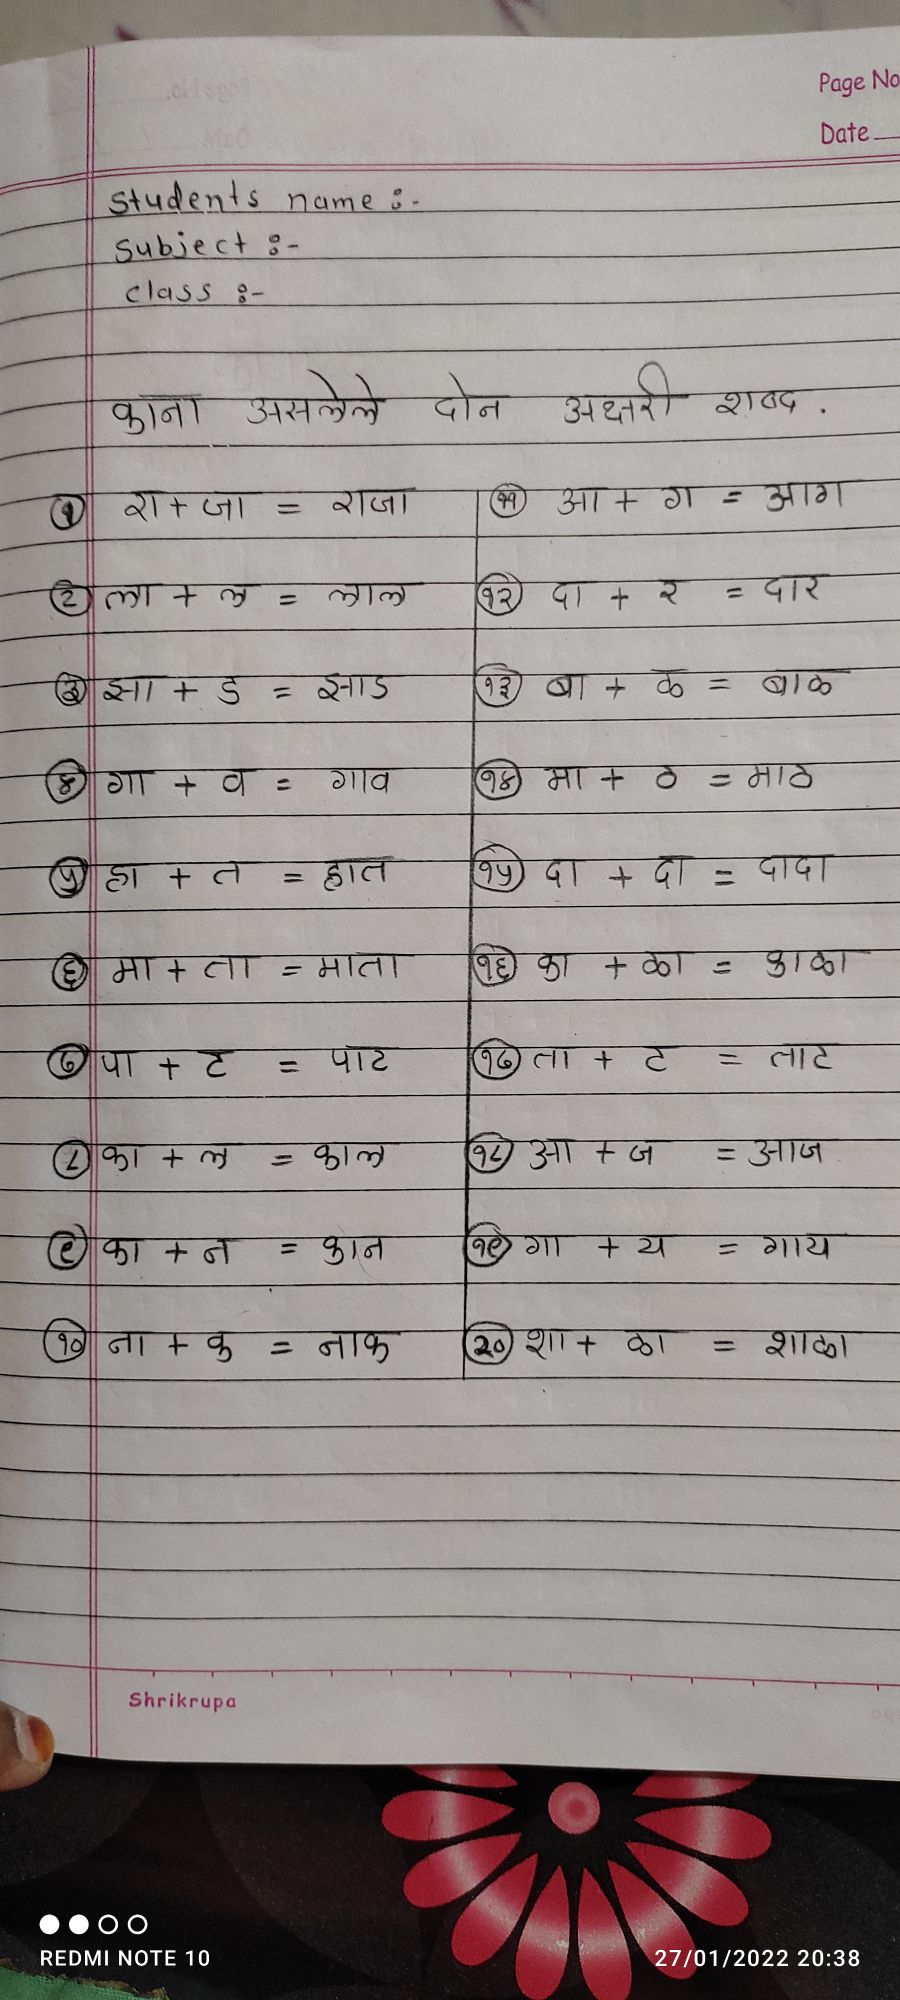 Page No
Date
Students name :-
Subject :-
class :-
काना असलेले दोन अक्षरी शब्द .
१ रा + जा = राजा
२ ला + ल = लाल
३ झा + ड = झाड
४ गा + व = गाव
५ हा + त = हात
६ मा + ता = माता
७ पा + ट = पाट
८ का + ल = काल
९ का + न = कान
१० ना + क = नाक
११ आ + ग = आग
१२ दा + र = दार
१३ बा + ळ = बाळ
१४ मा + ठ = माठ
१५ दा + दा = दादा
१६ का + ळा = काळा
१७ ता + ट = ताट
१८ आ + ज = आज
१९ गा + य = गाय
२० शा + ळा = शाळा
Shrikrupa
REDMI NOTE 10
27/01/2022 20:38